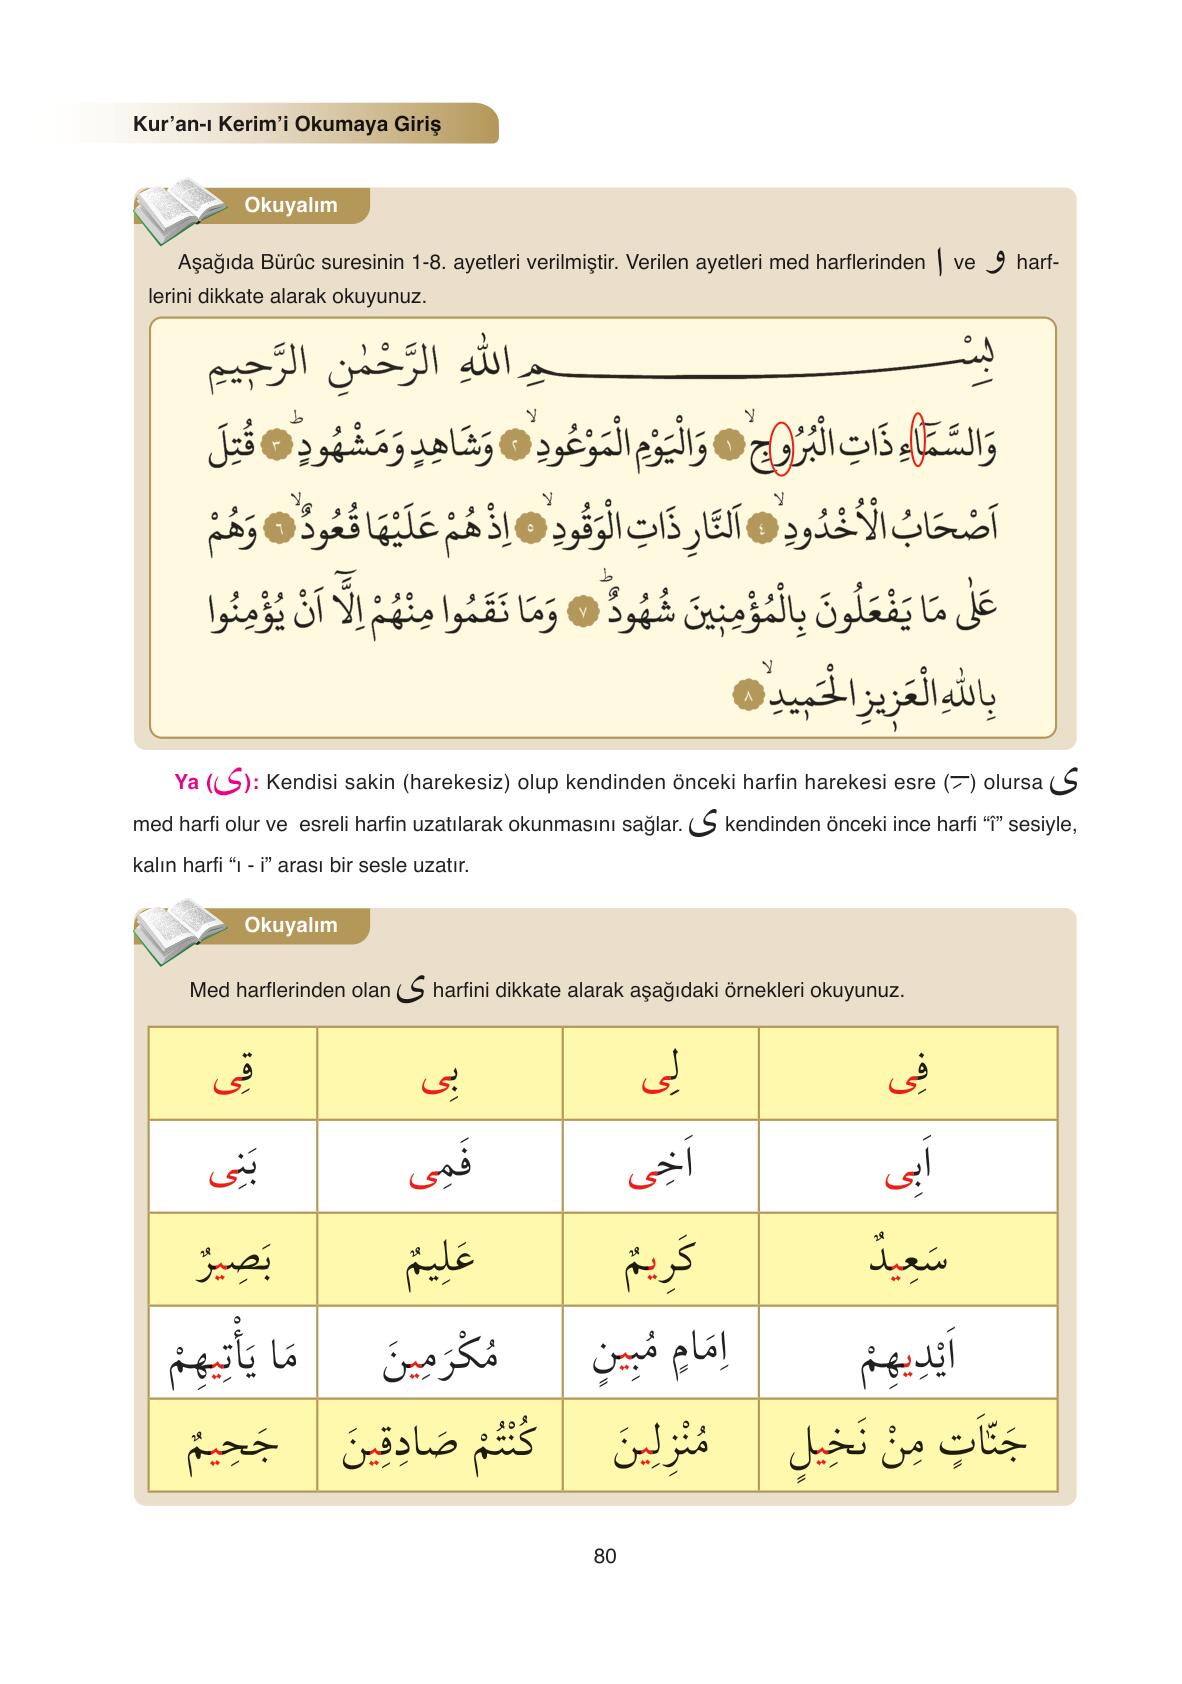 Kur’an-ı Kerim’i Okumaya Giriş
Okuyalım
Aşağıda Bürûc suresinin 1-8. ayetleri verilmiştir. Verilen ayetleri med harflerinden ا ve و harf-
lerini dikkate alarak okuyunuz.
بِسْمِ اللّٰهِ الرَّحْمٰنِ الرَّح۪يمِ
وَالسَّمَٓاءِ ذَاتِ الْبُرُوجِۙ ﴿١﴾ وَالْيَوْمِ الْمَوْعُودِۙ ﴿٢﴾ وَشَاهِدٍ وَمَشْهُودٍۜ ﴿٣﴾ قُتِلَ
اَصْحَابُ الْاُخْدُودِۙ ﴿٤﴾ اَلنَّارِ ذَاتِ الْوَقُودِۙ ﴿٥﴾ اِذْ هُمْ عَلَيْهَا قُعُودٌۙ ﴿٦﴾ وَهُمْ
عَلٰى مَا يَفْعَلُونَ بِالْمُؤْمِن۪ينَ شُهُودٌۜ ﴿٧﴾ وَمَا نَقَمُوا مِنْهُمْ اِلَّٓا اَنْ يُؤْمِنُوا
بِاللّٰهِ الْعَز۪يزِ الْحَم۪يدِۙ ﴿٨﴾
Ya (ى): Kendisi sakin (harekesiz) olup kendinden önceki harfin harekesi esre (ـِ) olursa ى
med harfi olur ve esreli harfin uzatılarak okunmasını sağlar. ى kendinden önceki ince harfi “î” sesiyle,
kalın harfi “ı - i” arası bir sesle uzatır.
Okuyalım
Med harflerinden olan ى harfini dikkate alarak aşağıdaki örnekleri okuyunuz.
فِى لِى بِى قِى
اَبِى اَخِى فَمِى بَنِى
سَعِيدٌ كَرِيمٌ عَلِيمٌ بَصِيرٌ
اَيْدِيهِمْ اِمَامٍ مُبِينٍ مُكْرَمِينَ مَا يَأْتِيهِمْ
جَنَّاتٍ مِنْ نَخِيلٍ مُنْزِلِينَ كُنْتُمْ صَادِقِينَ جَحِيمٌ
80